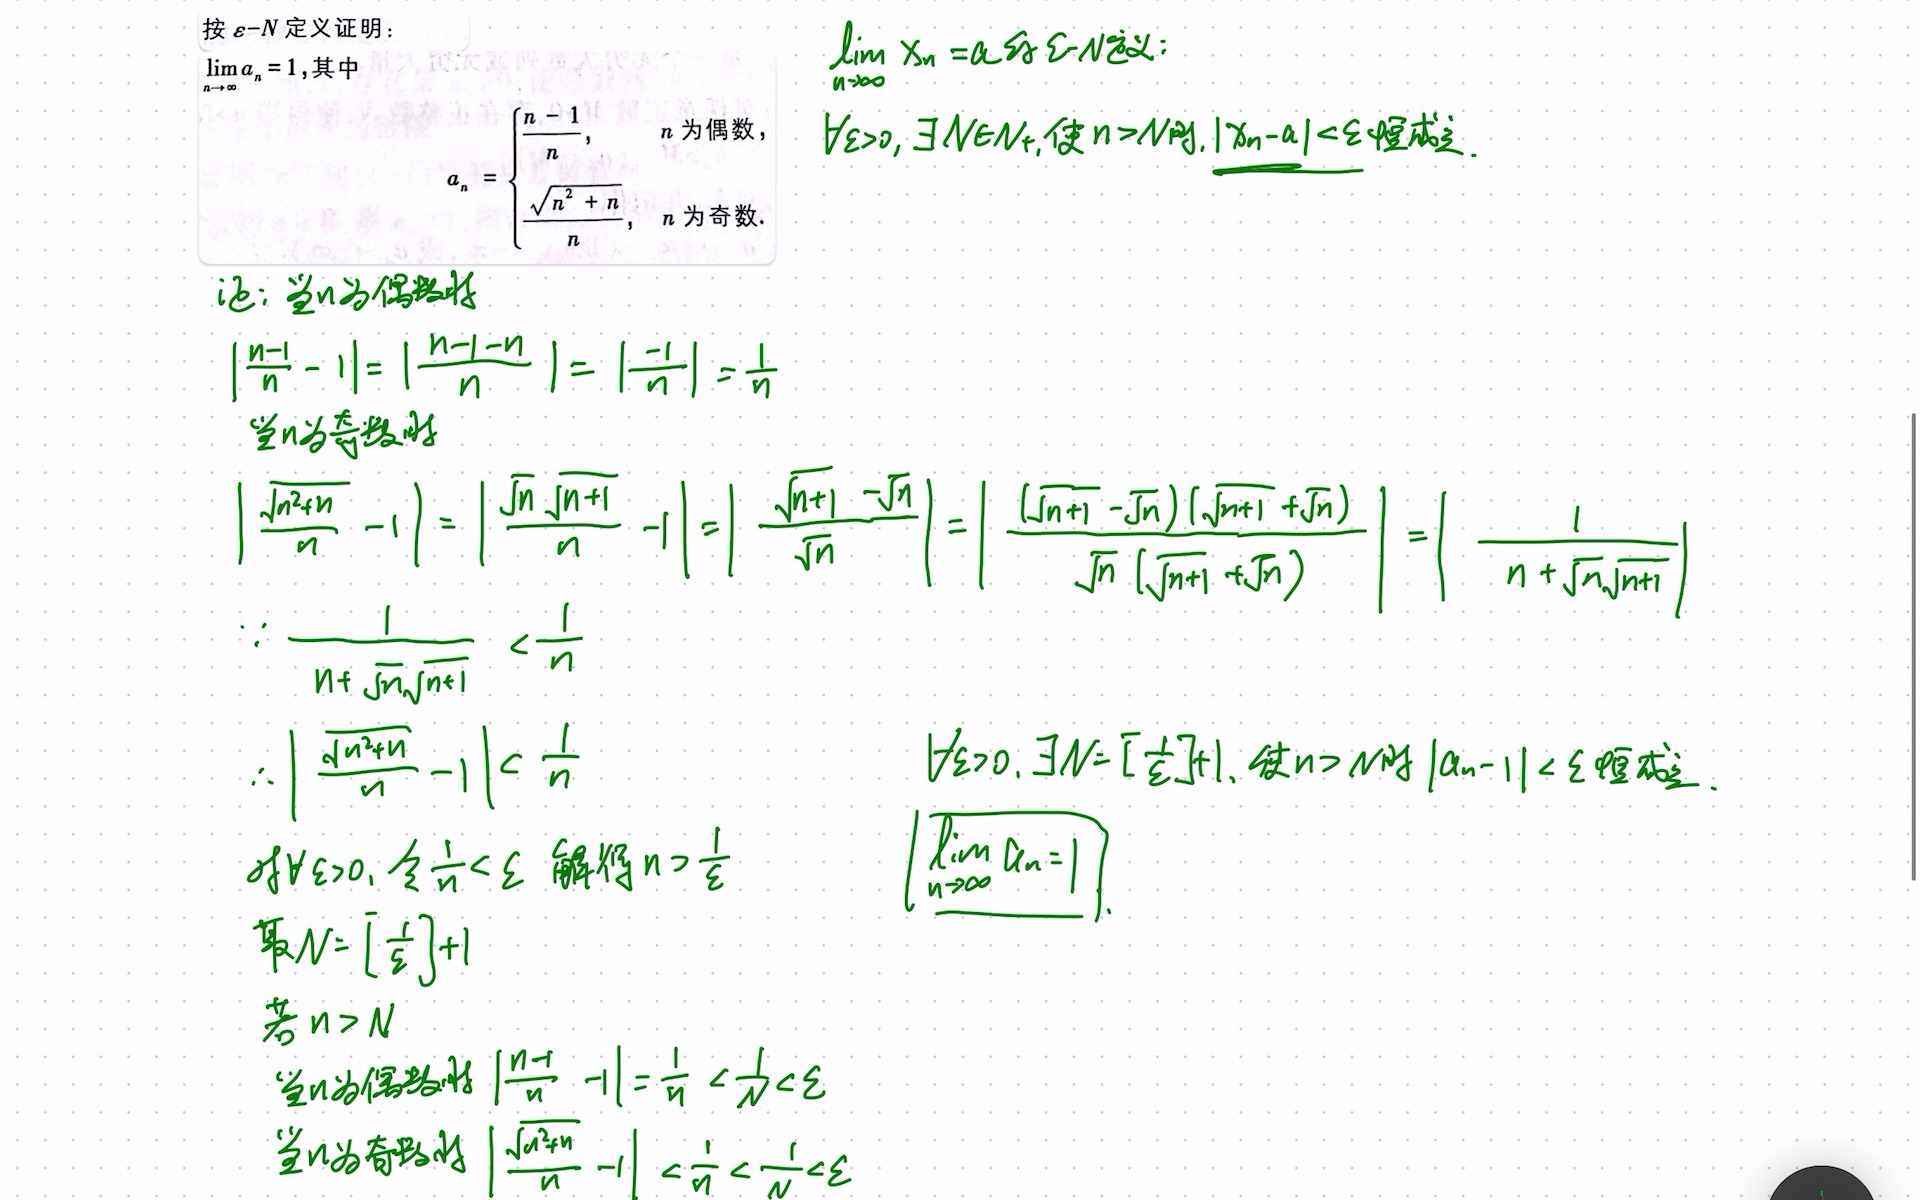 按 ε-N 定义证明:
lim_{n→∞} a_n = 1, 其中
a_n = { (n - 1)/n, n 为偶数,
√(n² + n)/n, n 为奇数.
lim_{n→∞} x_n = a 的 ε-N定义:
∀ε>0, ∃N∈N₊, 使 n>N时, |x_n-a|<ε 恒成立.
证: 当n为偶数时
|(n-1)/n - 1| = |(n-1-n)/n| = |-1/n| = 1/n
当n为奇数时
|√(n²+n)/n - 1| = |√n √(n+1)/n - 1| = |(√(n+1) - √n)/√n| = |(√(n+1) - √n)(√(n+1) + √n)/(√n (√(n+1) + √n))| = |1/(n + √n √(n+1))|
∵ 1/(n + √n √(n+1)) < 1/n
∴ |√(n²+n)/n - 1| < 1/n
对∀ε>0, 令 1/n < ε 解得 n > 1/ε
取N = [1/ε]+1
若 n > N
当n为偶数时 |(n-1)/n - 1| = 1/n < 1/N < ε
当n为奇数时 |√(n²+n)/n - 1| < 1/n < 1/N < ε
∀ε>0, ∃N = [1/ε]+1, 使n>N时 |a_n-1| < ε 恒成立.
lim_{n→∞} a_n = 1.